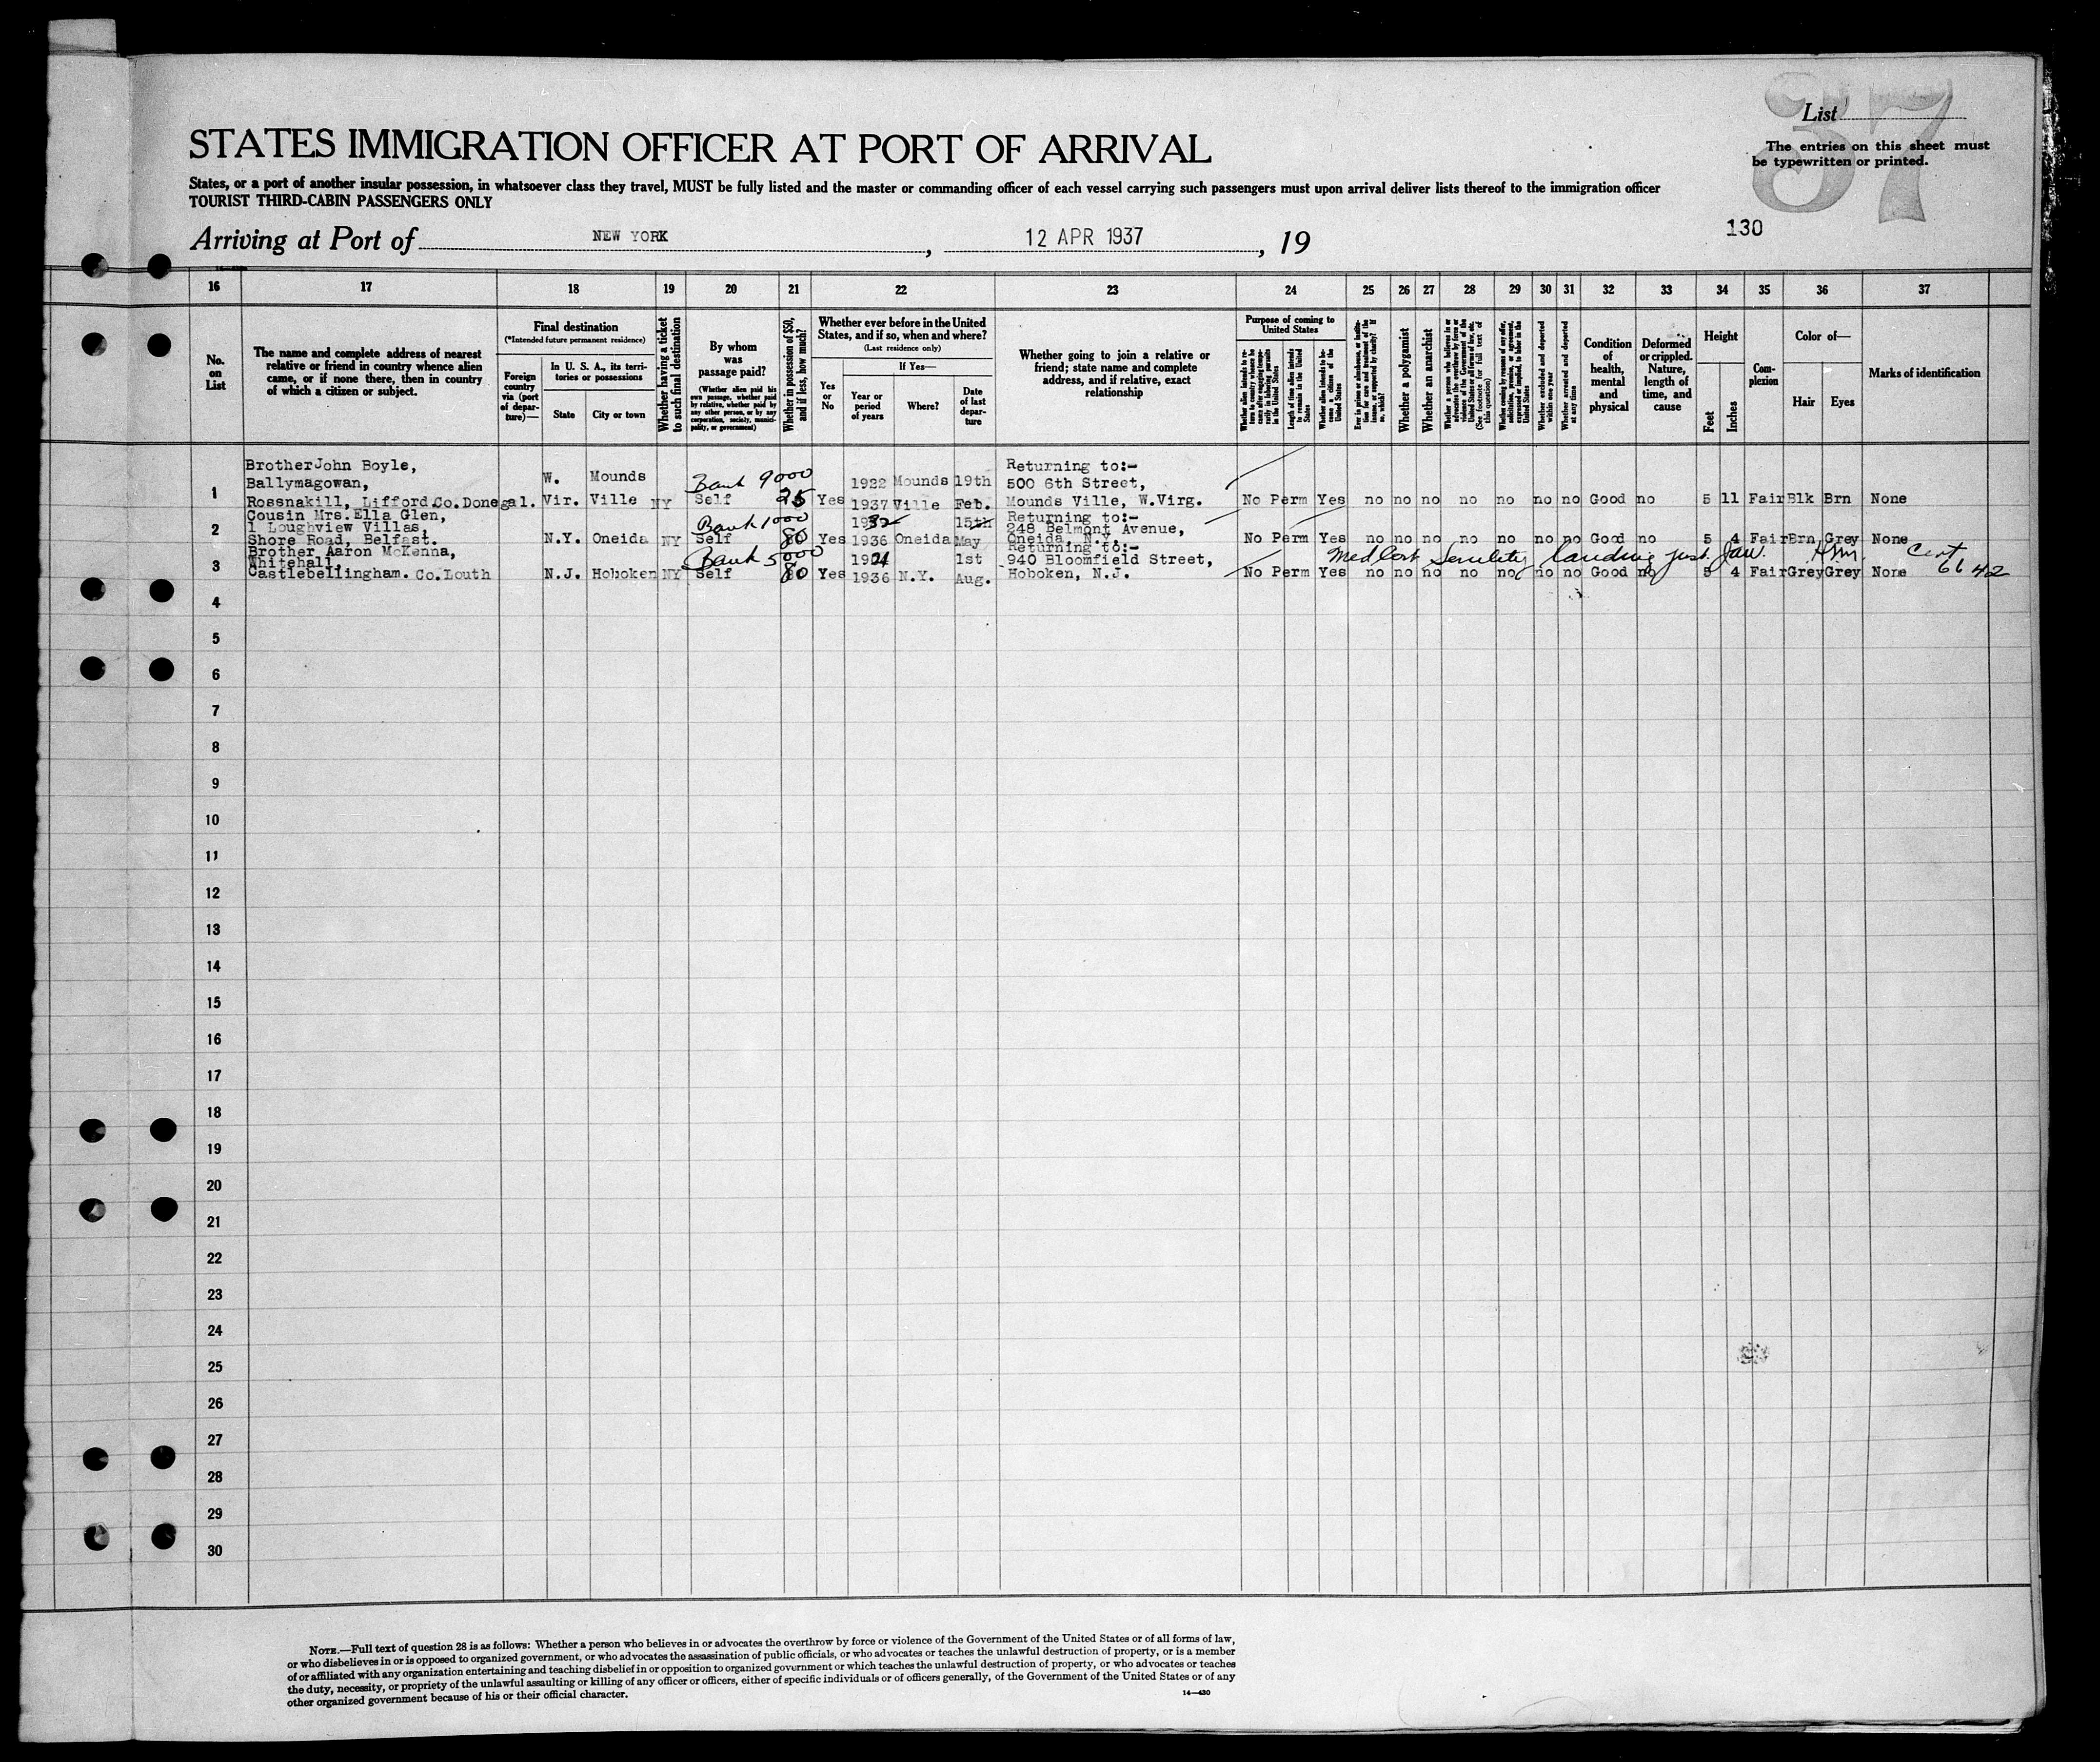 37
List
The entries on this sheet must
be typewritten or printed.
STATES IMMIGRATION OFFICER AT PORT OF ARRIVAL
States, or a port of another insular possession, in whatsoever class they travel, MUST be fully listed and the master or commanding officer of each vessel carrying such passengers must upon arrival deliver lists thereof to the immigration officer
TOURIST THIRD-CABIN PASSENGERS ONLY
130
Arriving at Port of NEW YORK, 12 APR 1937, 19
16 17 18 19 20 21 22 23 24 25 26 27 28 29 30 31 32 33 34 35 36 37
No.
on
List
The name and complete address of nearest
relative or friend in country whence alien
came, or if none there, then in country
of which a citizen or subject.
Final destination
(*Intended future permanent residence)
Foreign
country
via (port
of depar-
ture)—
In U. S. A., its terri-
tories or possessions
State
City or town
Whether having a ticket
to such final destination
By whom
was
passage paid?
(Whether alien paid his
own passage, whether paid
by relative, whether paid by
any other person, or by any
corporation, society, munici-
pality, or government)
Whether in possession of $50,
and if less, how much?
Whether ever before in the United
States, and if so, when and where?
(Last residence only)
Yes
or
No
If Yes—
Year or
period
of years
Where?
Date
of last
depar-
ture
Whether going to join a relative or
friend; state name and complete
address, and if relative, exact
relationship
Purpose of coming to
United States
Whether alien intends to re-
turn to country whence he
came after engaging tempo-
rarily in laboring pursuits
in the United States
Length of time alien intends
to remain in the United
States
Whether alien intends to be-
come a citizen of the
United States
Ever in prison or almshouse, or institu-
tion for care and treatment of the
insane, or supported by charity? If
so, which?
Whether a polygamist
Whether an anarchist
Whether a person who believes in or
advocates the overthrow by force or
violence of the Government of the
United States or all forms of law, etc.
(See footnote for full text of
this question)
Whether coming by reasons of any offer,
solicitation, promise, or agreement,
expressed or implied, to labor in the
United States
Whether excluded and deported
within one year
Whether arrested and deported
at any time
Condition
of
health,
mental
and
physical
Deformed
or crippled.
Nature,
length of
time, and
cause
Height
Feet
Inches
Com-
plexion
Color of—
Hair
Eyes
Marks of identification
BrotherJohn Boyle, W. Mounds Bank 9000 1922 Mounds 19th Returning to:-
Ballymagowan, 500 6th Street,
1 Rossnakill, Lifford Co. Donegal. Vir. Ville NY Self 25 Yes 1937 Ville Feb. Mounds Ville, W.Virg. No Perm Yes no no no no no no no Good no 5 11 Fair Blk Brn None
Cousin Mrs.Ella Glen, Bank 1000 1932 15th Returning to:-
2 1 Loughview Villas, 248 Belmont Avenue,
Shore Road, Belfast. N.Y. Oneida NY Self 80 Yes 1936 Oneida May Oneida, N.Y. No Perm Yes no no no no no no no Good no 5 4 Fair Brn Grey None
Brother Aaron McKenna, Bank 5000 1924 1st Returning to:-
3 Whitehall, 940 Bloomfield Street, Med Cert Senility landing Cert
Castlebellingham. Co.Louth N.J. Hoboken NY Self 80 Yes 1936 N.Y. Aug. Hoboken, N.J. No Perm Yes no no no no no no no Good no 5 4 Fair Grey Grey None 6642
4
5
6
7
8
9
10
11
12
13
14
15
16
17
18
19
20
21
22
23
24
25
26
27
28
29
30
NOTE.—Full text of question 28 is as follows: Whether a person who believes in or advocates the overthrow by force or violence of the Government of the United States or of all forms of law,
or who disbelieves in or is opposed to organized government, or who advocates the assassination of public officials, or who advocates or teaches the unlawful destruction of property, or is a member
of or affiliated with any organization entertaining and teaching disbelief in or opposition to organized government or which teaches the unlawful destruction of property, or who advocates or teaches
the duty, necessity, or propriety of the unlawful assaulting or killing of any officer or officers, either of specific individuals or of officers generally, of the Government of the United States or of any
other organized government because of his or their official character.
14—430